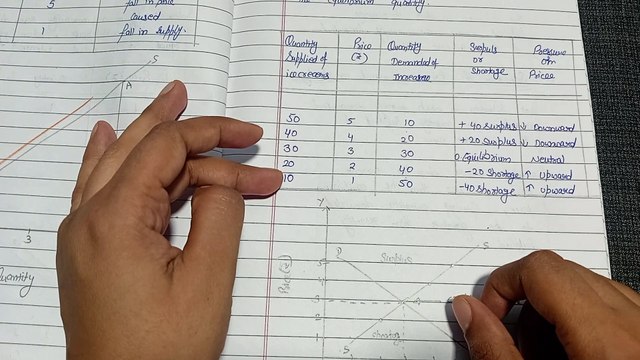 5
fall in price
caused
1
fall in supply.
S
A
3
Quantity
the equilibrium quantity.
Quantity Price Quantity Surplus Pressure
Supplied of (₹) Demanded of or on
icecreams Icecreams Shortage Prices
50 5 10 +40 Surplus ↓ Downward
40 4 20 +20 Surplus ↓ Downward
30 3 30 0 Equilibrium Neutral
20 2 40 -20 Shortage ↑ Upward
10 1 50 -40 Shortage ↑ Upward
Y
D
S
5
Surplus
4
Price (₹)
3
2
1
Shortage
S